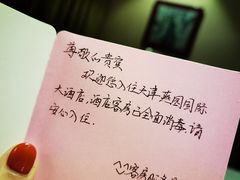 尊敬的贵宾
欢迎您入住天津燕园国际
大酒店，酒店客房已全面消毒，请
安心入住。
客房